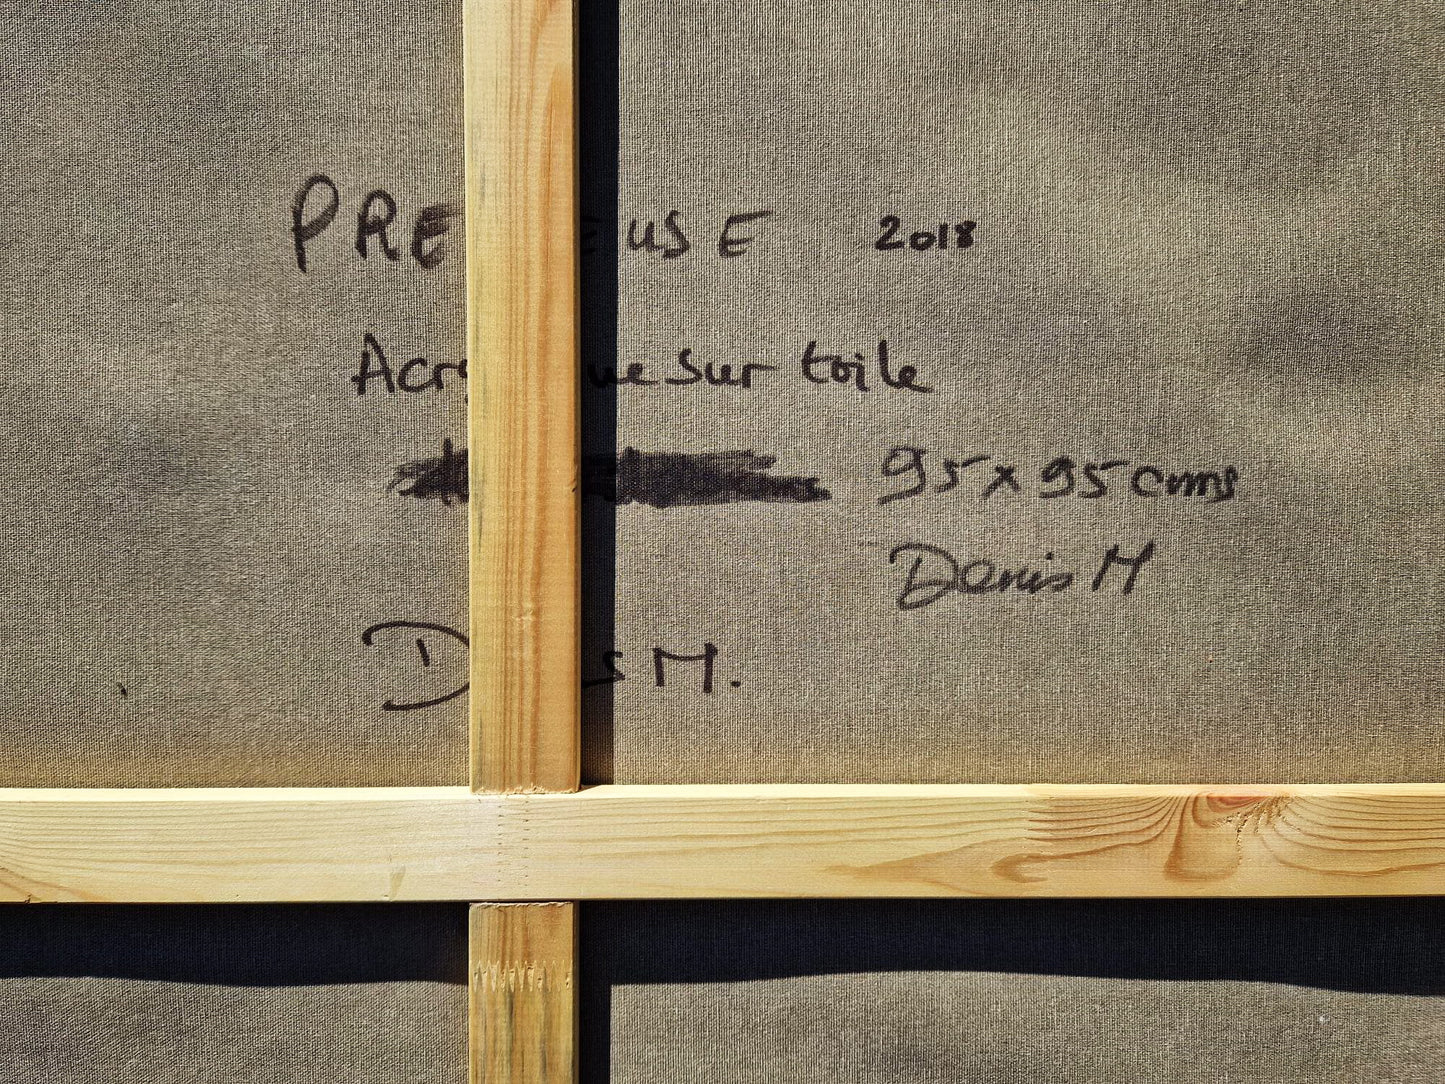 PRE EUSE 2018
Acry ue sur toile
95 x 95 cms
Denis M
D s M.